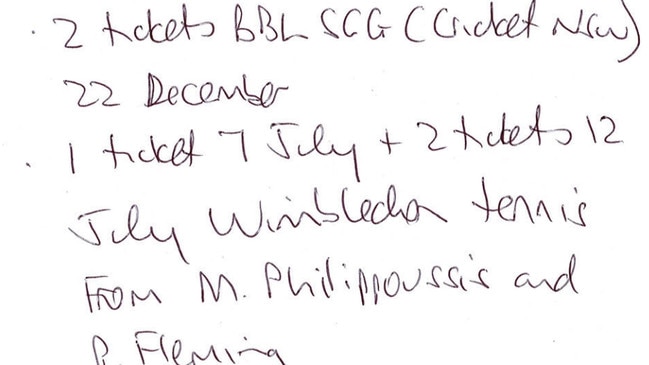 . 2 tickets BBL SCG (Cricket NSW)
22 December
. 1 ticket 7 July + 2 tickets 12
July Wimbledon tennis
From M. Philippoussis and
P. Fleming